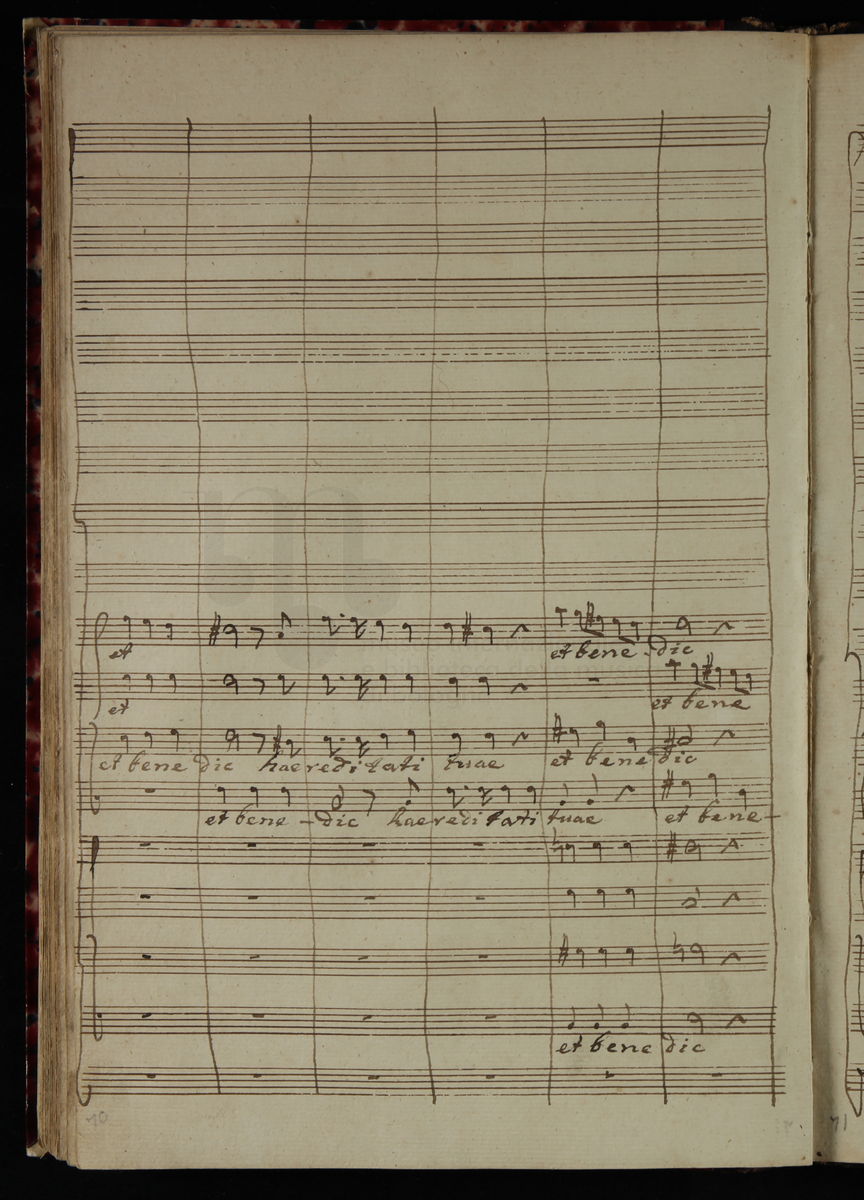 et et bene - dic
et et bene
et bene dic haereditati tuae et bene dic
et bene - dic haereditati tuae et bene -
et bene dic
70
71